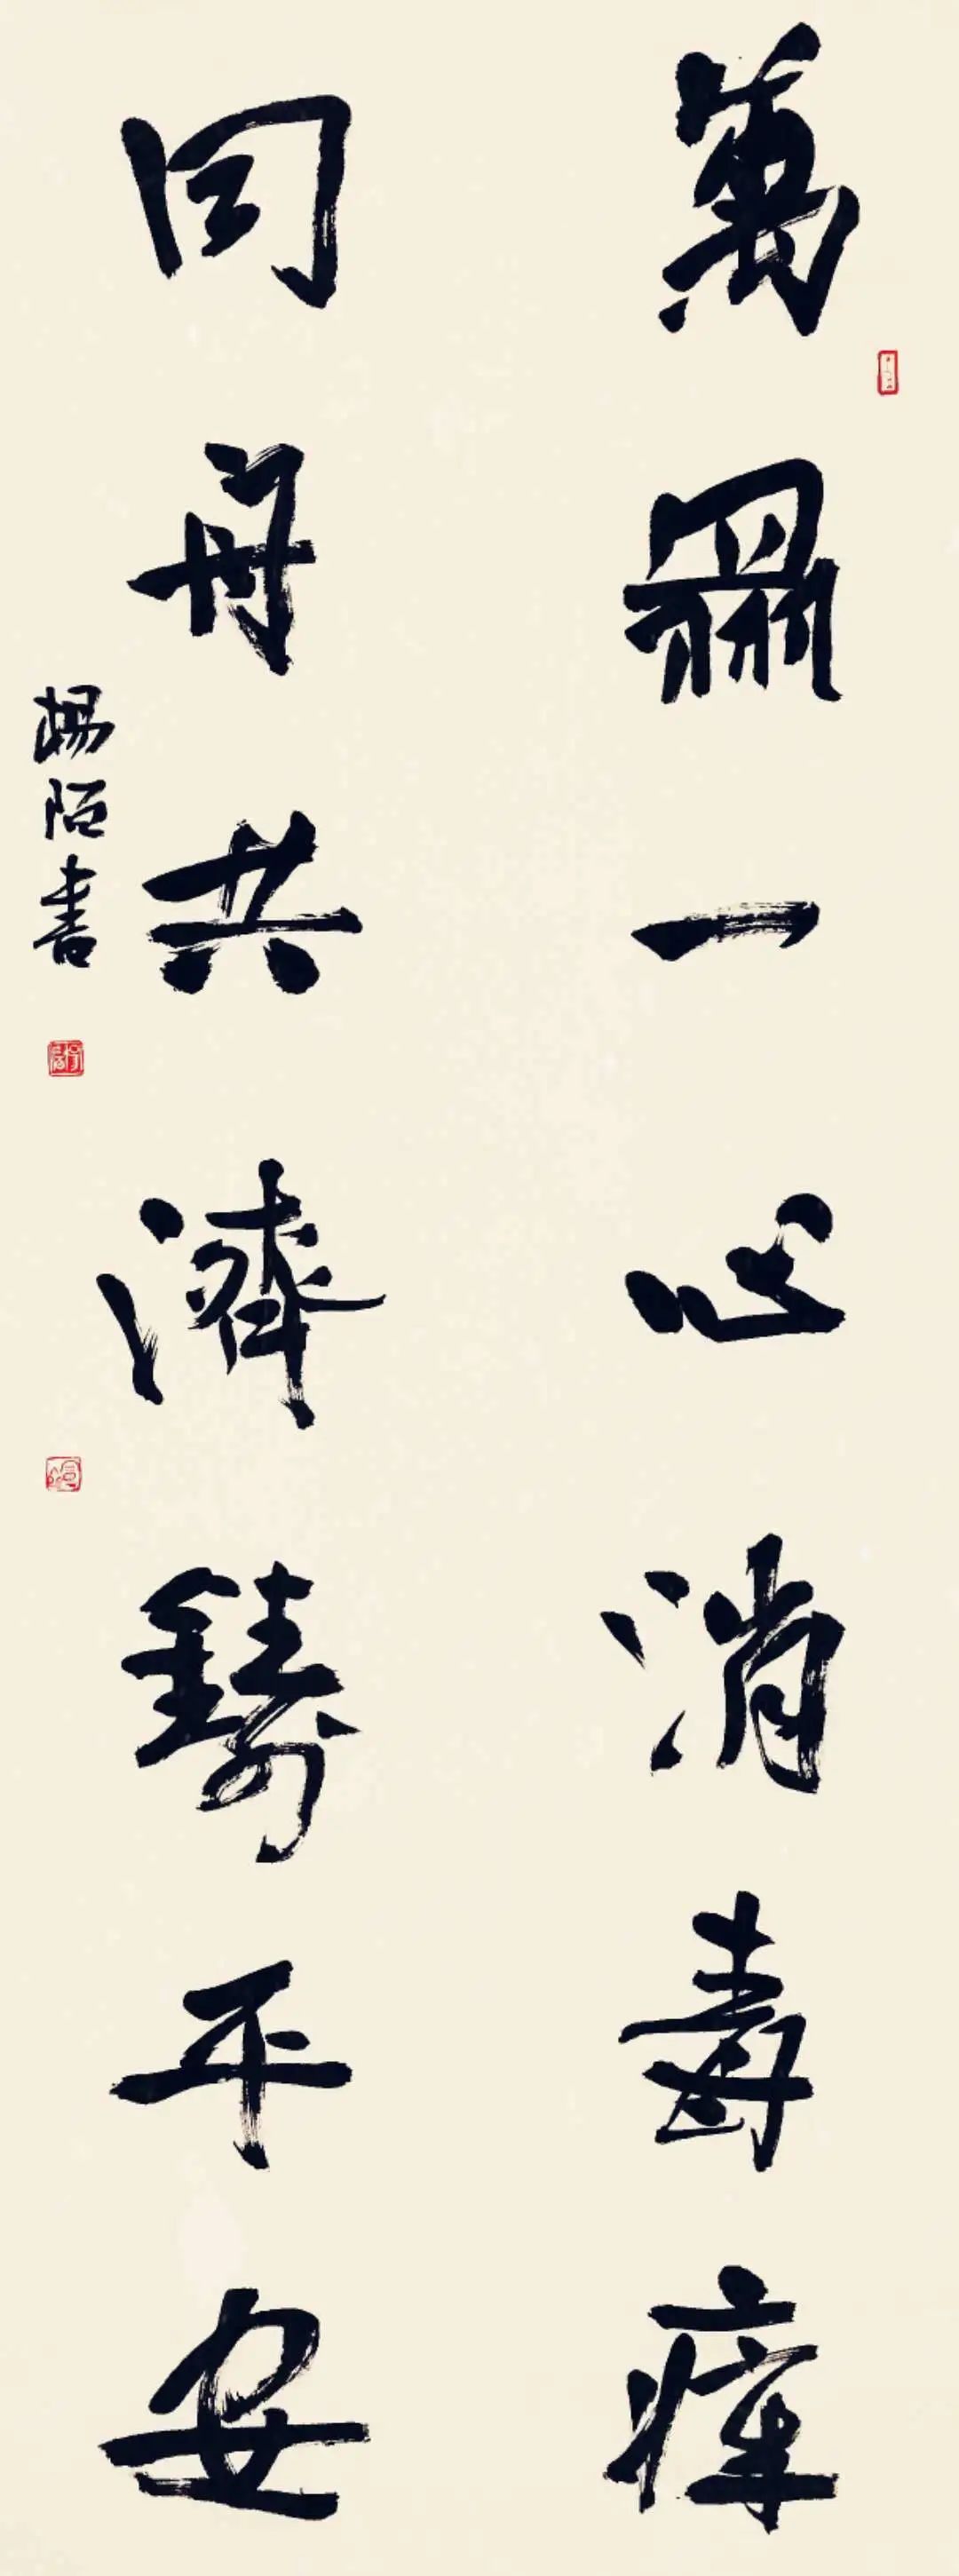 萬眾一心消毒瘴
同舟共濟鑄平安
楊陌書